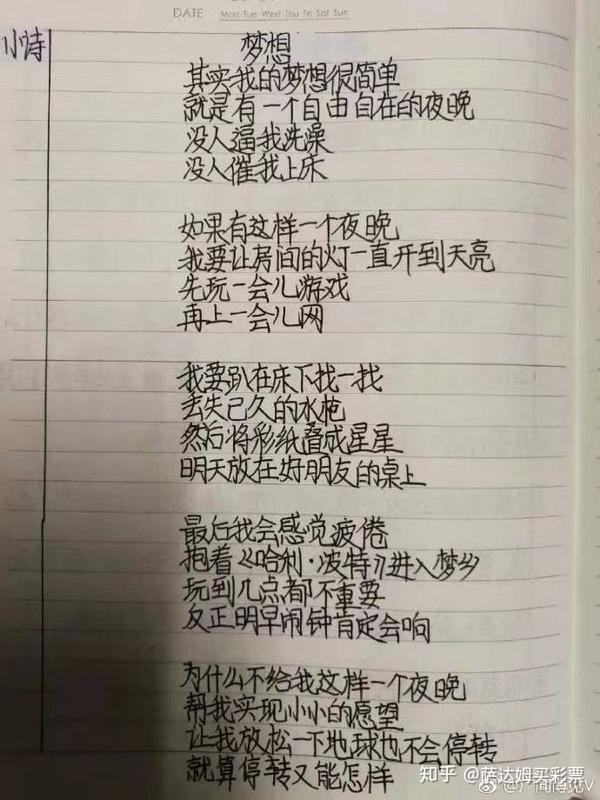 DATE
Mon Tue Wed Thu Fri Sat Sun
小诗
梦想
其实我的梦想很简单
就是有一个自由自在的夜晚
没人逼我洗澡
没人催我上床
如果有这样一个夜晚
我要让房间的灯一直开到天亮
先玩一会儿游戏
再上一会儿网
我要趴在床下找一找
丢失已久的水枪
然后将彩纸叠成星星
明天放在好朋友的桌上
最后我会感觉疲倦
抱着《哈利·波特》进入梦乡
玩到几点都不重要
反正明早闹钟肯定会响
为什么不给我这样一个夜晚
帮我实现小小的愿望
让我放松一下地球也不会停转
就算停转又能怎样
知乎 @萨达姆买彩票